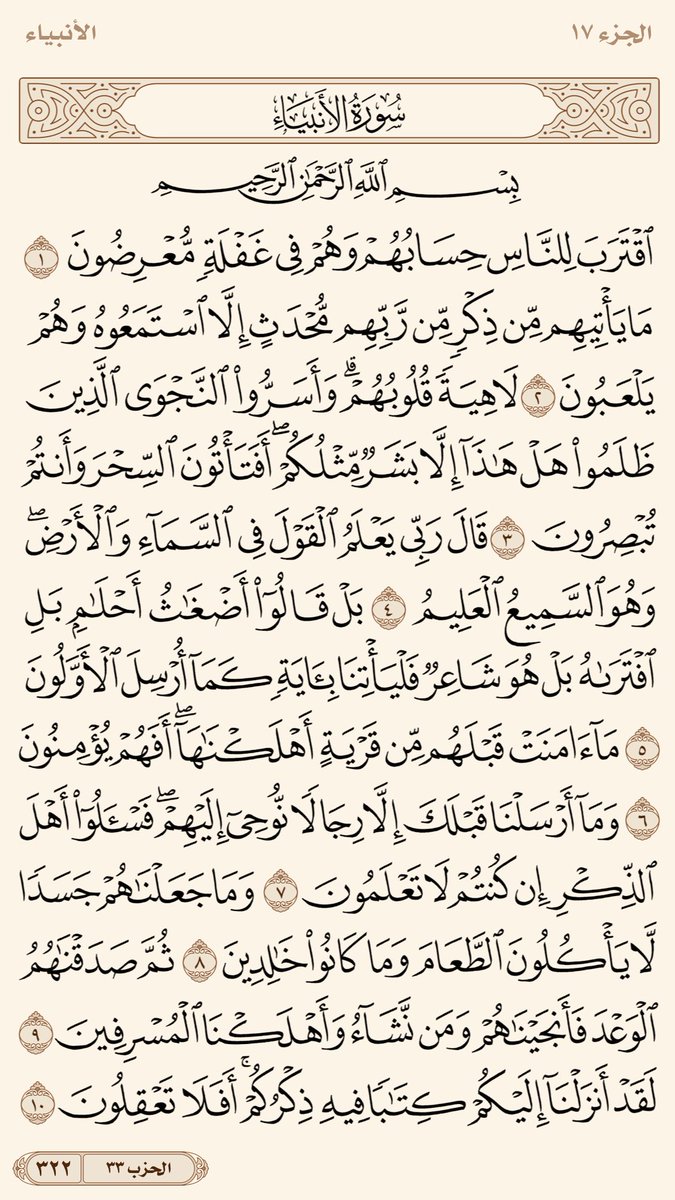 الجزء ١٧
الأنبياء
سُورَةُ الأَنبِيَاءِ
بِسْمِ ٱللَّهِ ٱلرَّحْمَٰنِ ٱلرَّحِيمِ
ٱقْتَرَبَ لِلنَّاسِ حِسَابُهُمْ وَهُمْ فِى غَفْلَةٍ مُّعْرِضُونَ ١
مَا يَأْتِيهِم مِّن ذِكْرٍ مِّن رَّبِّهِم مُّحْدَثٍ إِلَّا ٱسْتَمَعُوهُ وَهُمْ
يَلْعَبُونَ ٢ لَاهِيَةً قُلُوبُهُمْ ۗ وَأَسَرُّوا۟ ٱلنَّجْوَى ٱلَّذِينَ
ظَلَمُوا۟ هَلْ هَٰذَآ إِلَّا بَشَرٌ مِّثْلُكُمْ ۖ أَفَتَأْتُونَ ٱلسِّحْرَ وَأَنتُمْ
تُبْصِرُونَ ٣ قَالَ رَبِّى يَعْلَمُ ٱلْقَوْلَ فِى ٱلسَّمَآءِ وَٱلْأَرْضِ ۖ
وَهُوَ ٱلسَّمِيعُ ٱلْعَلِيمُ ٤ بَلْ قَالُوٓا۟ أَضْغَٰثُ أَحْلَٰمٍۭ بَلِ
ٱفْتَرَىٰهُ بَلْ هُوَ شَاعِرٌ فَلْيَأْتِنَا بِـَٔايَةٍ كَمَآ أُرْسِلَ ٱلْأَوَّلُونَ
٥ مَآ ءَامَنَتْ قَبْلَهُم مِّن قَرْيَةٍ أَهْلَكْنَٰهَآ ۖ أَفَهُمْ يُؤْمِنُونَ
٦ وَمَآ أَرْسَلْنَا قَبْلَكَ إِلَّا رِجَالًا نُّوحِىٓ إِلَيْهِمْ ۖ فَسْـَٔلُوٓا۟ أَهْلَ
ٱلذِّكْرِ إِن كُنتُمْ لَا تَعْلَمُونَ ٧ وَمَا جَعَلْنَٰهُمْ جَسَدًا
لَّا يَأْكُلُونَ ٱلطَّعَامَ وَمَا كَانُوا۟ خَٰلِدِينَ ٨ ثُمَّ صَدَقْنَٰهُمُ
ٱلْوَعْدَ فَأَنجَيْنَٰهُمْ وَمَن نَّشَآءُ وَأَهْلَكْنَا ٱلْمُسْرِفِينَ ٩
لَقَدْ أَنزَلْنَآ إِلَيْكُمْ كِتَٰبًا فِيهِ ذِكْرُكُمْ ۖ أَفَلَا تَعْقِلُونَ ١٠
الحزب ٣٣
٣٢٢